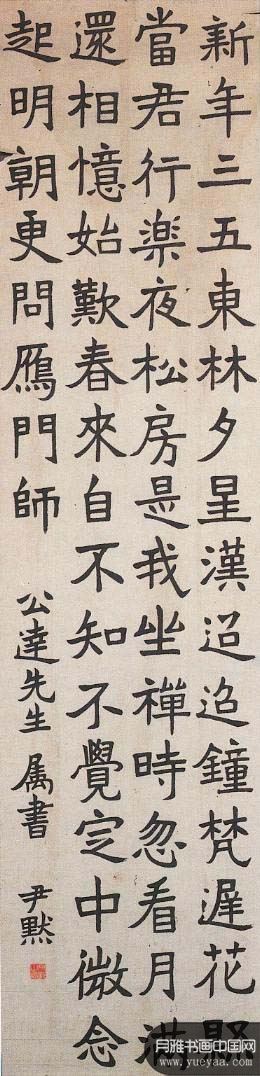 新年三五東林夕星漢迢迢鐘梵遲花縣
當君行楽夜松房是我坐禪時忽看月滿
還相憶始歎春來自不知不覺定中微念
起明朝更問鴈門師
公達先生属書 尹默
月雅书画中国网
www.yueyaa.com